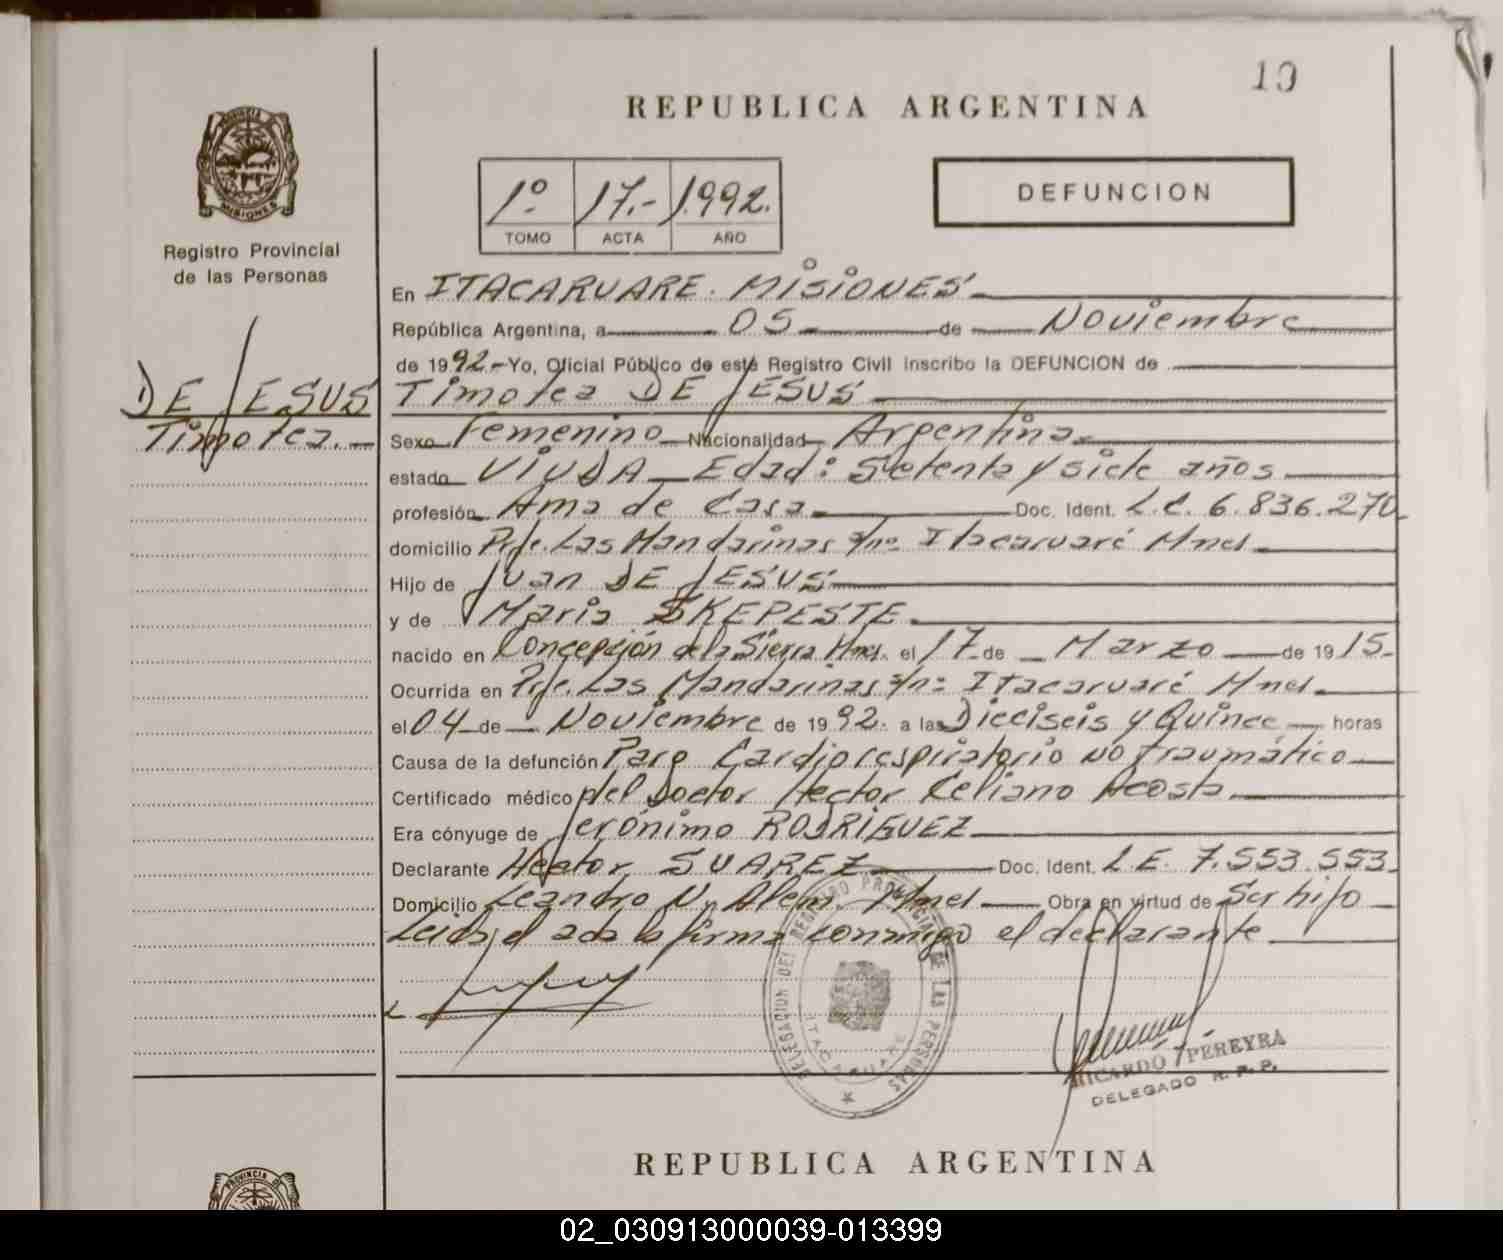 19
REPUBLICA ARGENTINA
PROVINCIA DE
MISIONES
Registro Provincial
de las Personas
1º 17.- 1.992.
TOMO ACTA AÑO
DEFUNCION
DE JESUS
Timotea.
En ITACARUARE. MISIONES
República Argentina, a 05 de Noviembre
de 1992.- Yo, Oficial Público de este Registro Civil inscribo la DEFUNCION de
Timotea DE JESUS
Sexo Femenino Nacionalidad Argentina
estado VIUDA Edad: Setenta y siete años
profesión Ama de Casa Doc. Ident. L.C. 6.836.270
domicilio Pje. Las Mandarinas s/nº Itacaruaré Mnes
Hijo de Juan DE JESUS
y de Maria SKEPESTE
nacido en Concepción de la Sierra Mnes. el 17 de Marzo de 1915.
Ocurrida en Pje. Las Mandarinas s/nº Itacaruaré Mnes
el 04 de Noviembre de 1992. a las Dieciseis y Quince horas
Causa de la defunción Paro Cardiorespiratorio no traumático
Certificado médico del Doctor Hector Celiano Acosta
Era cónyuge de Jerónimo RODRIGUEZ
Declarante Hector SUAREZ Doc. Ident. L.E. 7.553.553
Domicilio Leandro N. Alem. Mnes Obra en virtud de Ser hijo
Leida el acta la firma conmigo el declarante
DELEGACION DEL REGISTRO PROVINCIAL DE LAS PERSONAS
ITACARUARE
RICARDO PEREYRA
DELEGADO R. P. P.
REPUBLICA ARGENTINA
PROVINCIA DE
02_030913000039-013399